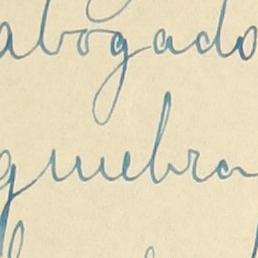 abogado
quebra